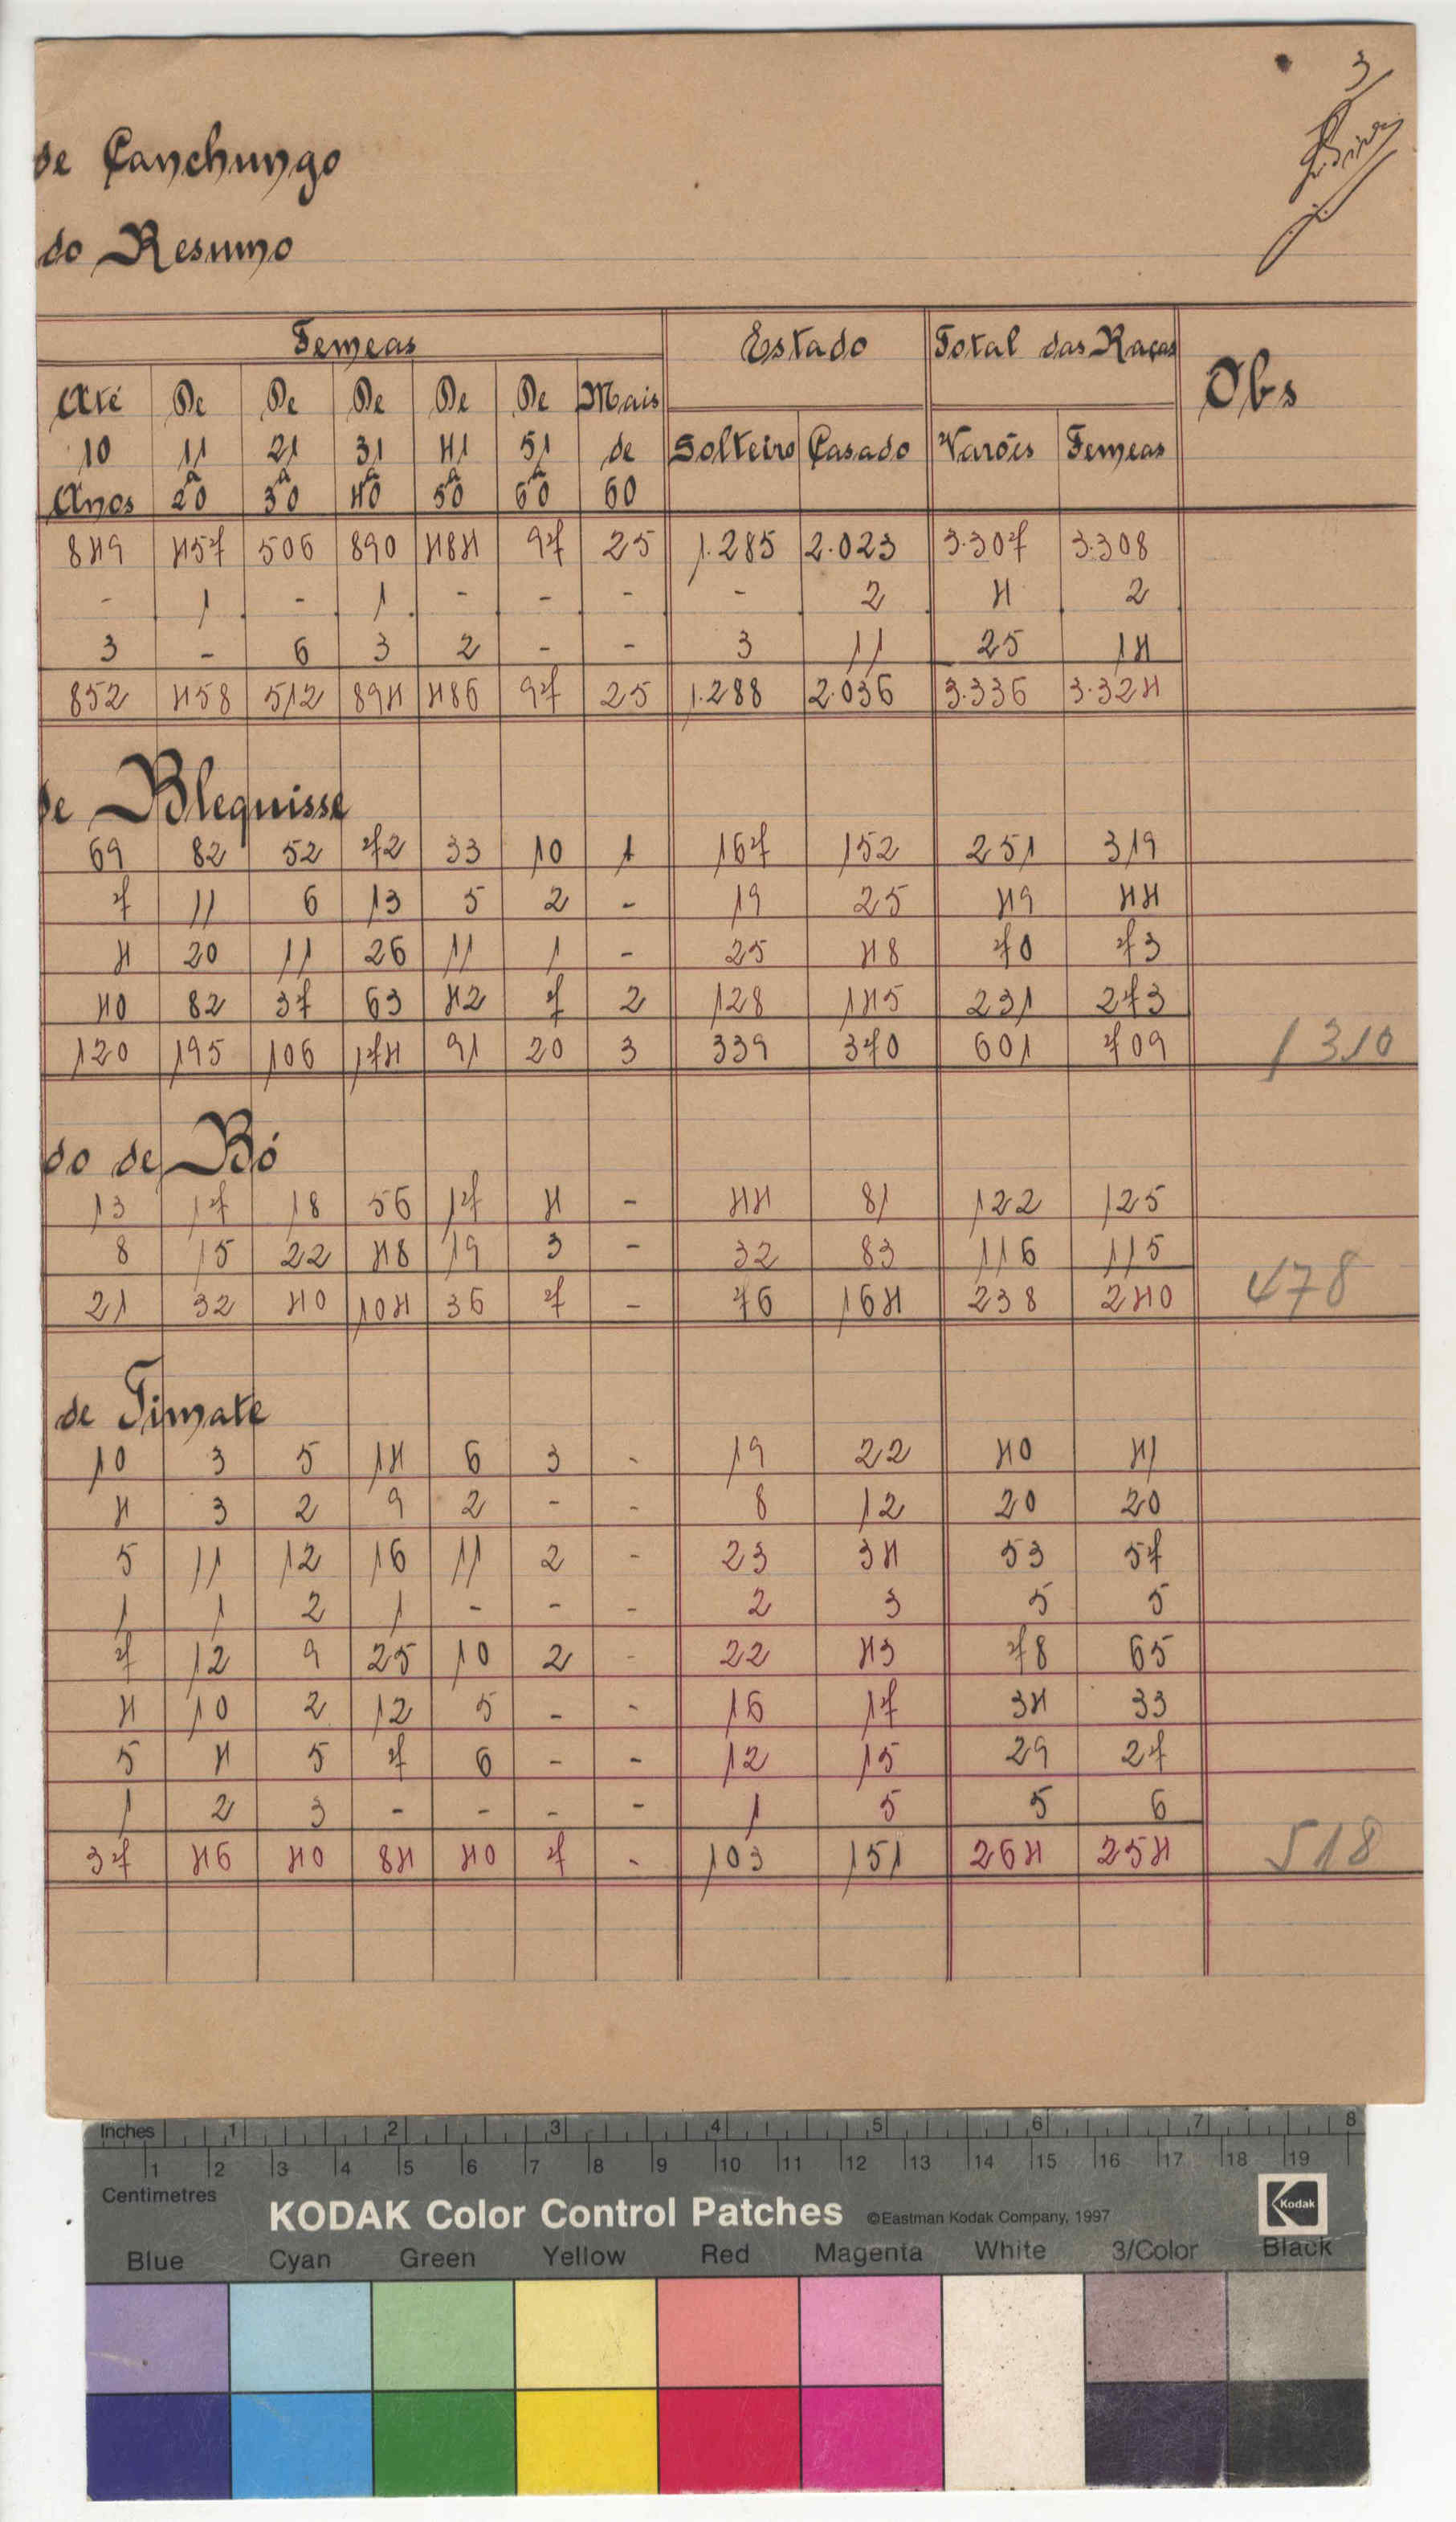 3
de Canchungo
do Resumo
Femeas Estado Total das Raças Obs
Até De De De De De Mais
10 11 21 31 41 51 de Solteiro Casado Varões Femeas
a a a a a
Anos 20 30 40 50 60 60
849 457 506 890 484 97 25 1.285 2.023 3.307 3.308
- 1 - 1 - - - - 2 4 2
3 - 6 3 2 - - 3 11 25 14
852 458 512 894 486 97 25 1.288 2.036 3.336 3.324
de Blequisse
69 82 52 72 33 10 1 167 152 251 319
7 11 6 13 5 2 - 19 25 49 44
4 20 11 26 11 1 - 25 48 70 73
40 82 37 63 42 7 2 128 145 231 273
120 195 106 174 91 20 3 339 370 601 709 1310
do de Bó
13 17 18 56 17 4 - 44 81 122 125
8 15 22 48 19 3 - 32 83 116 115
21 32 40 104 36 7 - 76 164 238 240 478
de Timate
10 3 5 14 6 3 - 19 22 40 41
4 3 2 9 2 - - 8 12 20 20
5 11 12 16 11 2 - 23 34 53 57
1 1 2 1 - - - 2 3 5 5
7 12 9 25 10 2 - 22 43 78 65
4 10 2 12 5 - - 16 17 34 33
5 4 5 7 6 - - 12 15 29 27
1 2 3 - - - - 1 5 5 6
37 46 40 84 40 7 - 103 151 264 254 518
Inches 1 2 3 4 5 6 7 8
1 2 3 4 5 6 7 8 9 10 11 12 13 14 15 16 17 18 19
Centimetres
KODAK Color Control Patches ©Eastman Kodak Company, 1997 Kodak
Blue Cyan Green Yellow Red Magenta White 3/Color Black